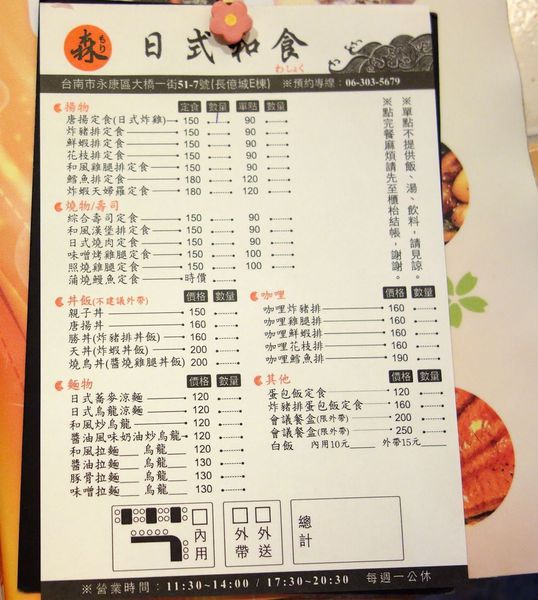 もり
森 日式和食
わしょく
台南市永康區大橋一街51-7號(長億城E棟) ※預約專線：06-303-5679
揚物 定食 數量 單點 數量
唐揚定食(日式炸雞) 150 90
炸豬排定食 150 90
鮮蝦排定食 150 90
花枝排定食 150 90
和風雞腿排定食 150 90
鱈魚排定食 180 120
炸蝦天婦羅定食 180 120
燒物/壽司
綜合壽司定食 150 90
和風漢堡排定食 150 90
日式燒肉定食 150 90
味噌烤雞腿定食 150 100
照燒雞腿定食 150 100
蒲燒鰻魚定食 時價
※單點不提供飯、湯、飲料，請見諒。
※點完餐麻煩請先至櫃枱結帳，謝謝。
丼飯(不建議外帶) 價格 數量
親子丼 150
唐揚丼 160
勝丼(炸豬排丼飯) 160
天丼(炸蝦丼飯) 200
燒鳥丼(醬燒雞腿丼飯) 200
咖哩 價格 數量
咖哩炸豬排 160
咖哩雞腿排 160
咖哩鮮蝦排 160
咖哩花枝排 160
咖哩鱈魚排 190
麵物 價格 數量
日式蕎麥涼麵 120
日式烏龍涼麵 120
和風炒烏龍 120
醬油風味奶油炒烏龍 120
和風拉麵__ 烏龍__ 120
醬油拉麵__ 烏龍__ 130
豚骨拉麵__ 烏龍__ 130
味噌拉麵__ 烏龍__ 130
其他 價格 數量
蛋包飯定食 120
炸豬排蛋包飯定食 160
會議餐盒(限外帶) 200
會議餐盒(限外帶) 250
白飯 內用10元__ 外帶15元__
內用
外帶
外送
總計
※營業時間：11:30~14:00 / 17:30~20:30 每週一公休